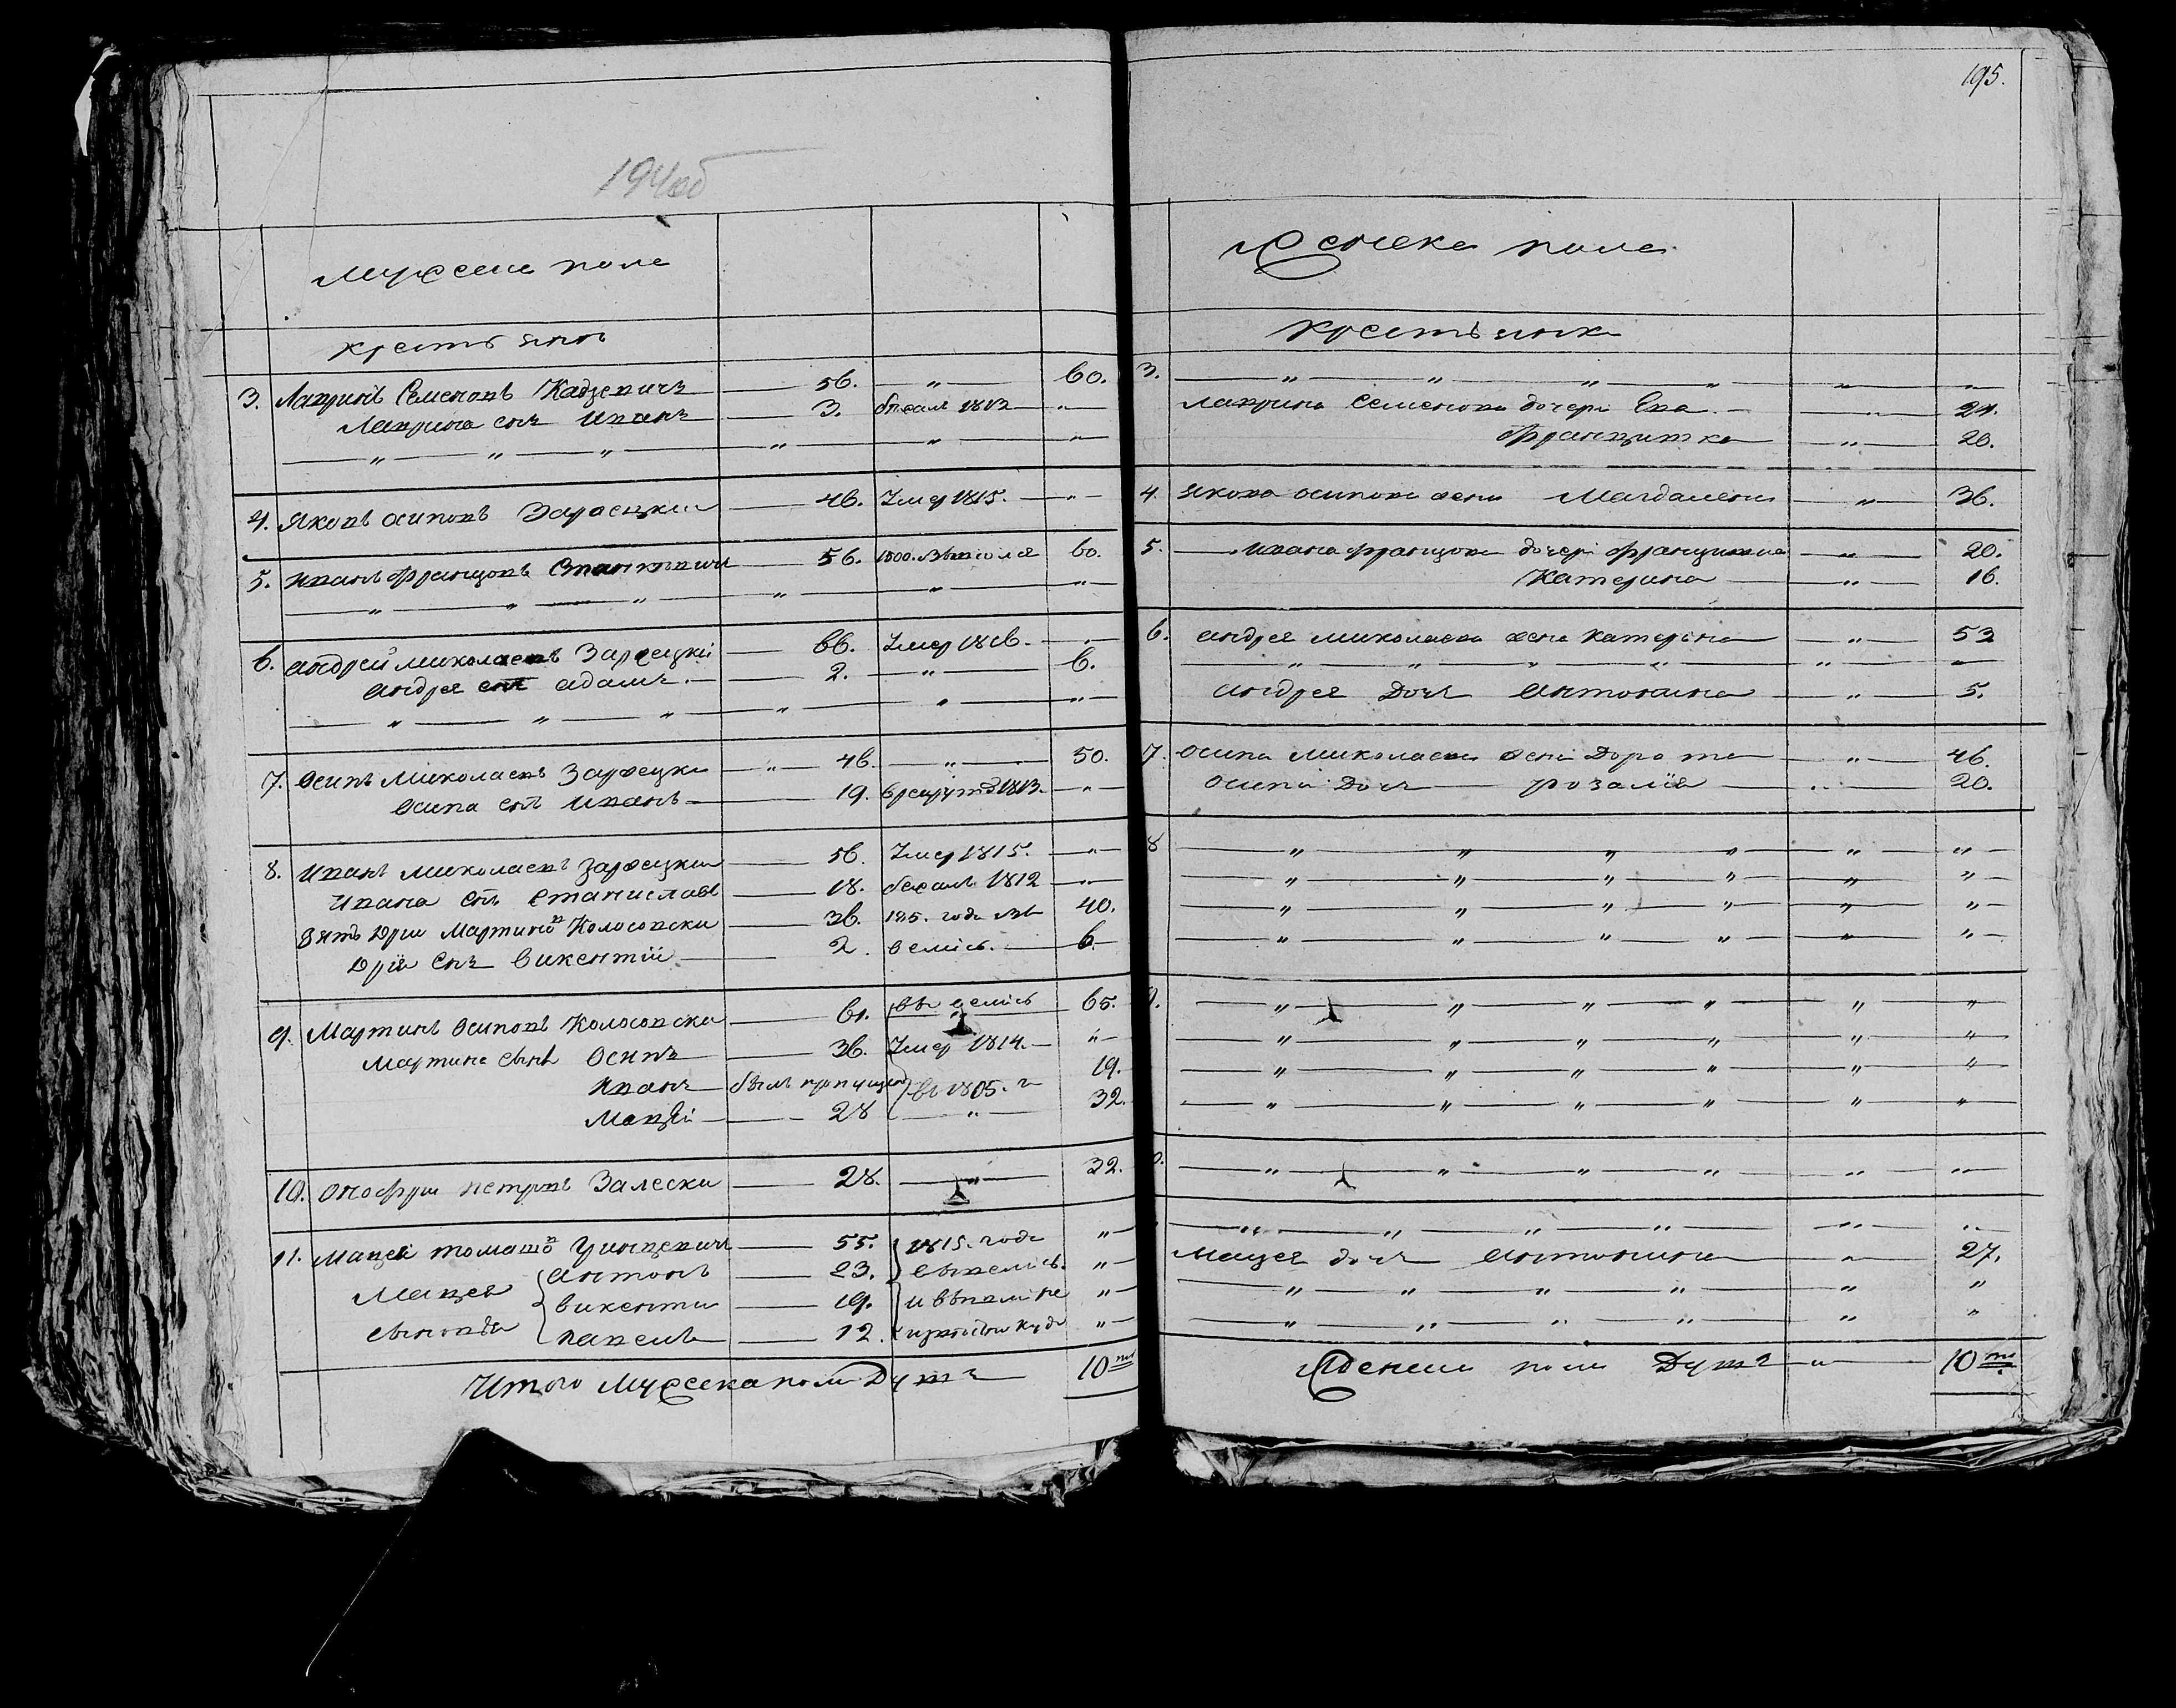 194об
Мужеска пола
крестьянъ
3. Лавринъ Семеновъ Кадзевичъ — 56. — „ — 60.
Лаврина снъ Иванъ — 3. бежал 1812 — „ —
— „ — „ — „ — „ — „ — „
4. Яковъ осиповъ Зарецки — 46. Умер 1815. — „ —
5. иванъ францовъ Станкевичъ — 56. 60.
— „ — „ — „ — „ — „ — „
6. андрей миколаевъ Зарецкі — 66. Умер 1816. — „ —
андрея снъ адамъ. — 2. — „ — 6.
— „ — „ — „ — „ — „ — „
7. Осипъ Миколаевъ Зарецки — „ — 46. — „ — 50.
Осипа снъ иванъ — 19. в рекруты 1813. — „ —
8. иванъ миколаевъ зарецки — 56. Умер 1815. — „ —
ивана снъ Станиславъ — 18. бежалъ 1812 — „ —
Зять Юрии Мартиновъ Колосовски — 36. года 40.
Юрия снъ викентій — 2. 6.
9. Мартинъ Осиповъ Колосовски — 61. 65.
Мартина сынъ Осипъ — 36. Умер 1814. — „ —
иванъ — былъ пропущен въ 1805. г 19.
Мацей — 28 — „ — 32.
10. онофрии петровъ Залески — 28. — „ — 32.
11. мацей томашовъ — 55. 1815. года „ —
Мацея антонъ — 23. „ —
викенти — 19. „ —
сыновья павелъ — 12. „ —
Итого Мужеска пола Душъ 10ть
195.
Женска пола
крестьянка
3. — „ — „ — „ — „ — „ — „
лаврина Семенова дочери Ева. — „ — 24.
францишка — „ — 20.
4. якова осипова жена Магдалена — „ — 36.
5. — ивана францова дочери францишка — „ — 20.
Катерина — „ — 16.
6. андрея миколаева жена катерина — „ — 53
— „ — „ — „ — „ — „ — „
андрея дочь антонина — „ — 5.
7. осипа миколаева жена Дорота — „ — 46.
осипа дочь — розалія — „ — 20.
8 — „ — „ — „ — „ — „ — „ —
— „ — „ — „ — „ — „ — „ —
— „ — „ — „ — „ — „ — „ —
— „ — „ — „ — „ — „ — „ —
9. — „ — „ — „ — „ — „ — „
— „ — „ — „ — „ — „ — „
— „ — „ — „ — „ — „ — „
— „ — „ — „ — „ — „ — „
0. — „ — „ — „ — „ — „ — „
— „ — „ — „ — „ — „ — „
мацея дочь антонина — „ — 27.
— „ — „ — „ — „ — „ — „
— „ — „ — „ — „ — „ — „
Женска пола Душъ — „ — 10ть